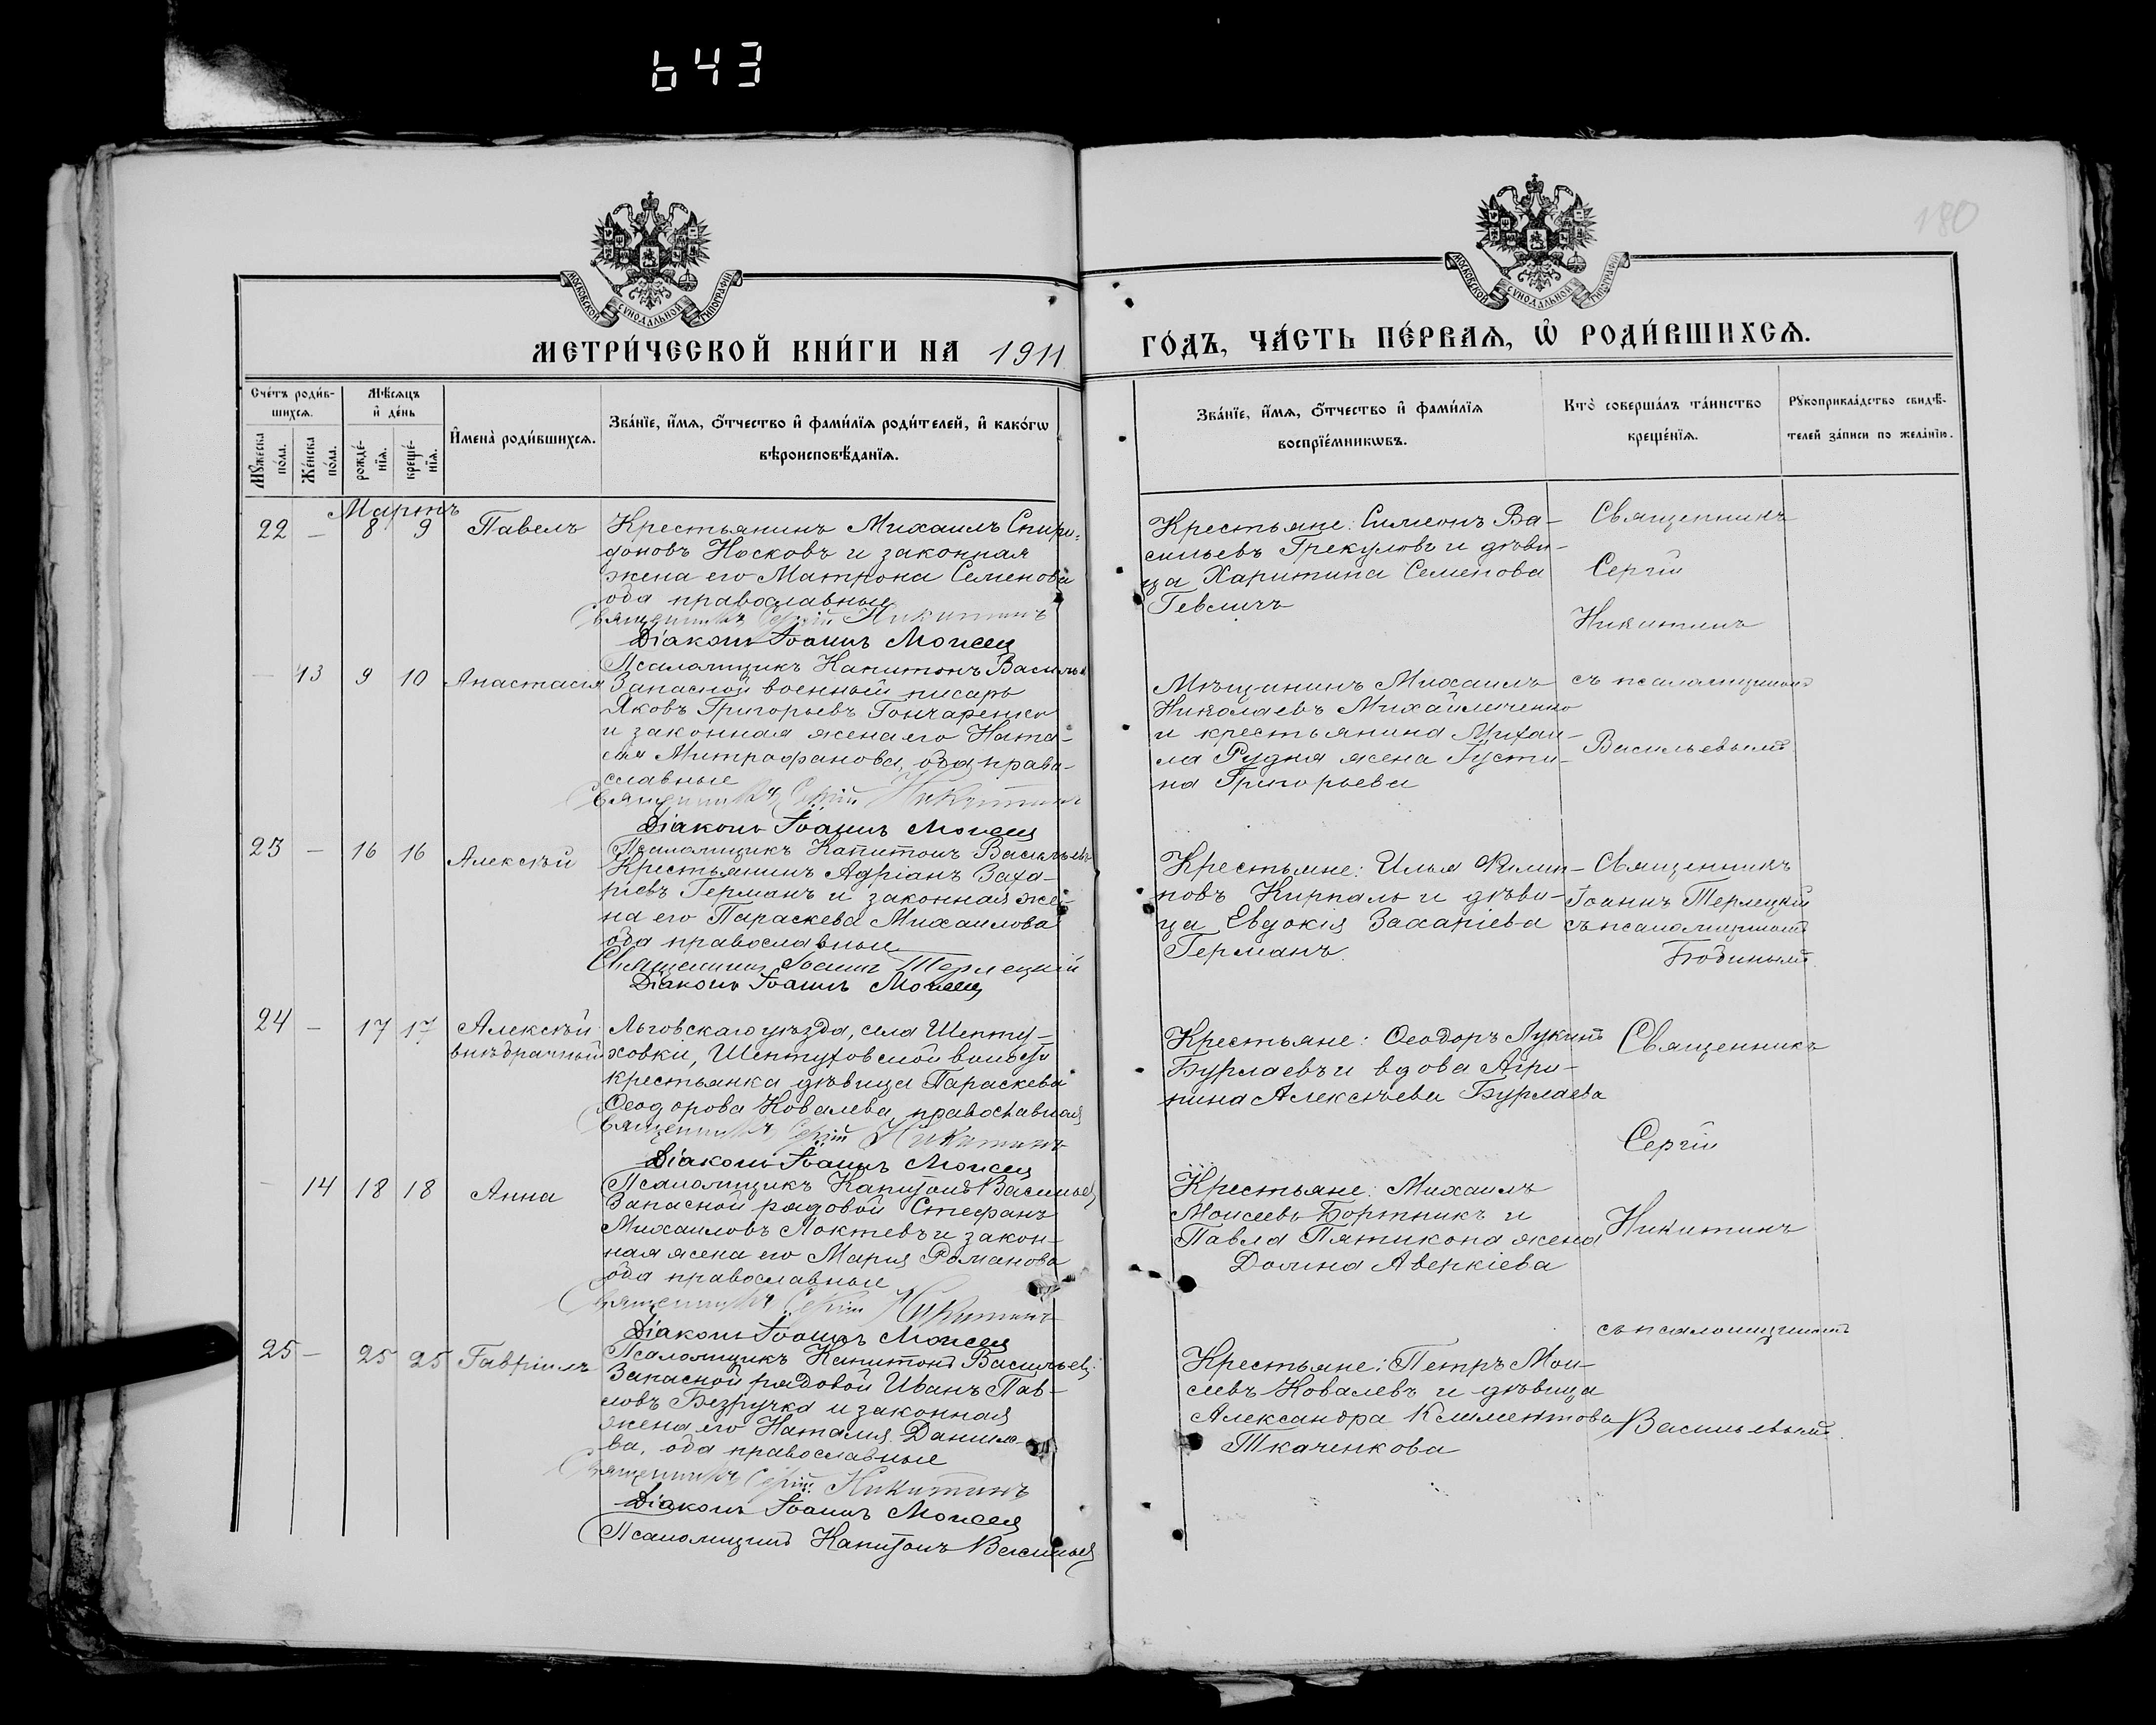 643
180
МОСКОВСКОЙ СУНОДАЛЬНОЙ ТИПОГРАФІИ
МОСКОВСКОЙ СУНОДАЛЬНОЙ ТИПОГРАФІИ
МЕТРИ́ЧЕСКОЙ КНИ́ГИ НА 1911
ГО́ДЪ, ЧА́СТЬ ПЕ́РВАѦ, Ѡ҆ РОДИ́ВШИХСѦ.
Сче́тъ роди́в-
шихсѧ.
Мѣ́сѧцъ
и҆ де́нь
Мꙋ́жеска
по́ла.
Же́нска
по́ла.
рожде́-
нїѧ.
креще́-
нїѧ.
И҆мена̀ роди́вшихсѧ.
Зва́нїе, и҆́мѧ, ѻ҆́тчество и҆ фами́лїѧ роди́телей, и҆ како́гѡ
вѣроисповѣ́данїѧ.
Зва́нїе, и҆́мѧ, ѻ҆́тчество и҆ фами́лїѧ
воспрїе́мникѡвъ.
Кто̀ соверша́лъ та́инство
креще́нїѧ.
Рꙋкоприкла́дство свидѣ́-
телей за́писи по жела́нїю.
Мартъ
22 — 8 9 Павелъ
Крестьянинъ Михаилъ Спири-
доновъ Носковъ и законная
жена его Матрона Семенова
оба православные
Священникъ Сергій Никитинъ
Діаконъ Іоаннъ Моисеев
Псаломщикъ Капитонъ Васильев
Крестьяне: Симеонъ Ва-
сильевъ Грекуловъ и дѣви-
ца Харитина Семенова
Гевличъ
Священникъ
Сергій
Никитинъ
— 13 9 10 Анастасія
Запасной военный писарь
Яковъ Григорьевъ Гончаренко
и законная жена его Ната-
лія Митрофанова, оба право-
славные
Священникъ Сергій Никитинъ
Діаконъ Іоаннъ Моисеев
Псаломщикъ Капитонъ Васильевъ
Мѣщанинъ Михаилъ
Николаевъ Михайличенко
и крестьянина Михаи-
ла Рудня жена Густи-
на Григорьева
съ псаломщикомъ
Васильевымъ
23 — 16 16 Алексѣй
Крестьянинъ Адріанъ Заха-
ріевъ Германъ и законная же-
на его Параскева Михаилова
оба православные
Священникъ Іоаннъ Терлецкій
Діаконъ Іоаннъ Моисеев
Крестьяне: Илья Филип-
повъ Кирналь и дѣви-
ца Евдокія Захаріева
Германъ.
Священникъ
Іоаннъ Терлецкій
съ псаломщикомъ
24 — 17 17 Алексѣй
внѣбрачный
Льговскаго уѣзда, села Шепту-
ховки, Шептуховской волости
крестьянка дѣвица Параскева
Ѳеодорова Ковалева, православная
Священникъ Сергій Никитинъ
Діаконъ Іоаннъ Моисеев
Псаломщикъ Капитонъ Васильев
Крестьяне: Ѳеодоръ Лукинъ
Бурлаевъ и вдова Агри-
пина Алексѣева Бурлаева
Священникъ
Сергій
— 14 18 18 Анна
Запасной рядовой Стефанъ
Михаиловъ Локтевъ и закон-
ная жена его Марія Романова
оба православные
Священникъ Сергій Никитинъ
Діаконъ Іоаннъ Моисеев
Псаломщикъ Капитонъ Васильев
Крестьяне: Михаилъ
Моисеевъ Бортникъ и
Павла Пятикопа жена
Домна Аверкіева
Никитинъ
съ псаломщикомъ
25 — 25 25 Гавріилъ
Запасной рядовой Иванъ Пав-
ловъ Безручко и законная
жена его Наталія Данило-
ва, оба православные
Священникъ Сергій Никитинъ
Діаконъ Іоаннъ Моисеев
Псаломщикъ Капитонъ Васильев
Крестьяне: Петръ Мои-
сеевъ Ковалевъ и дѣвица
Александра Климентова
Ткаченкова
Васильевымъ.